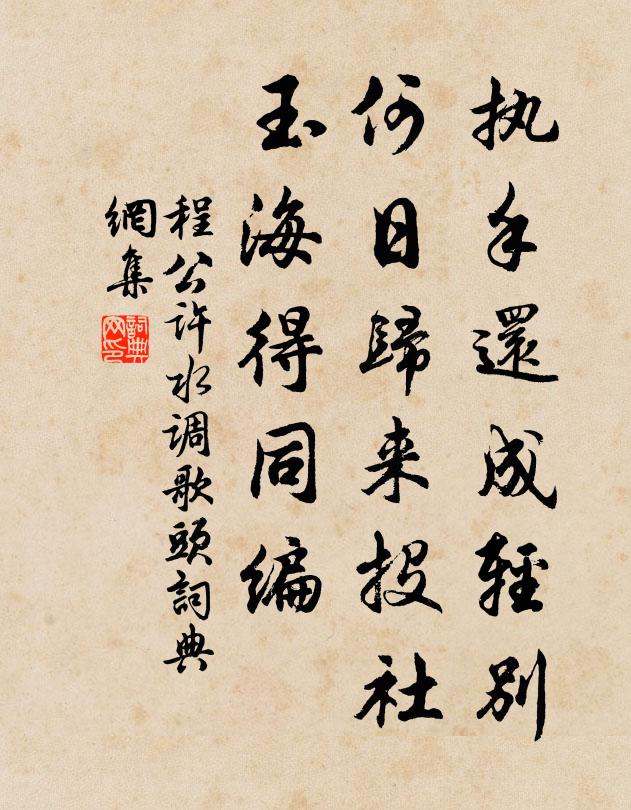 执手還成輕别
何日歸来投社
玉海得同编
程公许水调歌頭詞典
網集
詞典网印